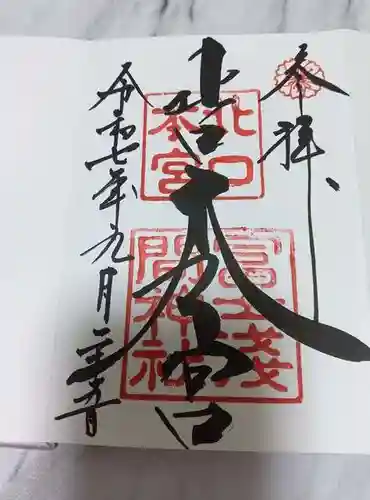 奉拝
北口本宮
北口本宮
冨士淺間神社
令和七年九月